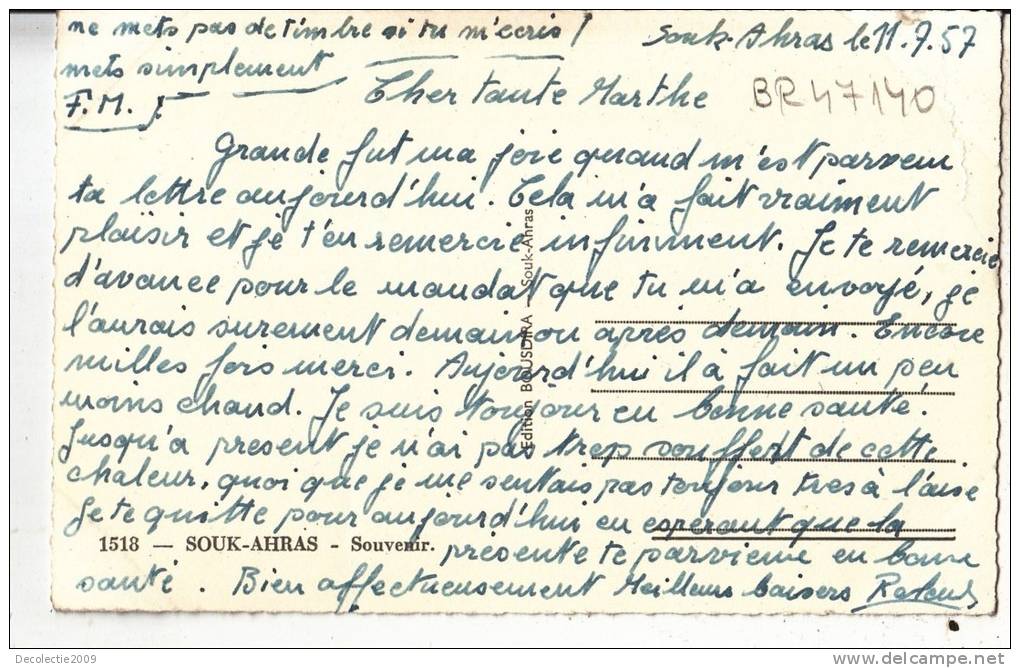 ne mets pas de timbre si tu m'ecris !
mets simplement
F.M.
Souk-Ahras le 11.7.57
BR47140
Cher tante Marthe
Grande fut ma joie quand m'est parvenu
ta lettre aujourd'hui. Cela m'a fait vraiment
plaisir et je t'en remercie infiniment. Je te remercie
d'avance pour le mandat que tu m'a envoyé, je
l'aurais surement demain ou après demain. Encore
milles fois merci. Aujourd'hui il à fait un peu
moins chaud. Je suis toujour en bonne santé.
Jusqu'à present je n'ai pas trop souffert de cette
chaleur, quoi que je me sentais pas toujour tres à l'aise
Je te quitte pour aujourd'hui en esperant que la
présente te parvienne en bonne
santé. Bien affectueusement Meilleurs baisers Roland
1518 — SOUK-AHRAS - Souvenir.
Edition BOUSDIRA - Souk-Ahras
Decolectie2009
http://www.delcampe.net